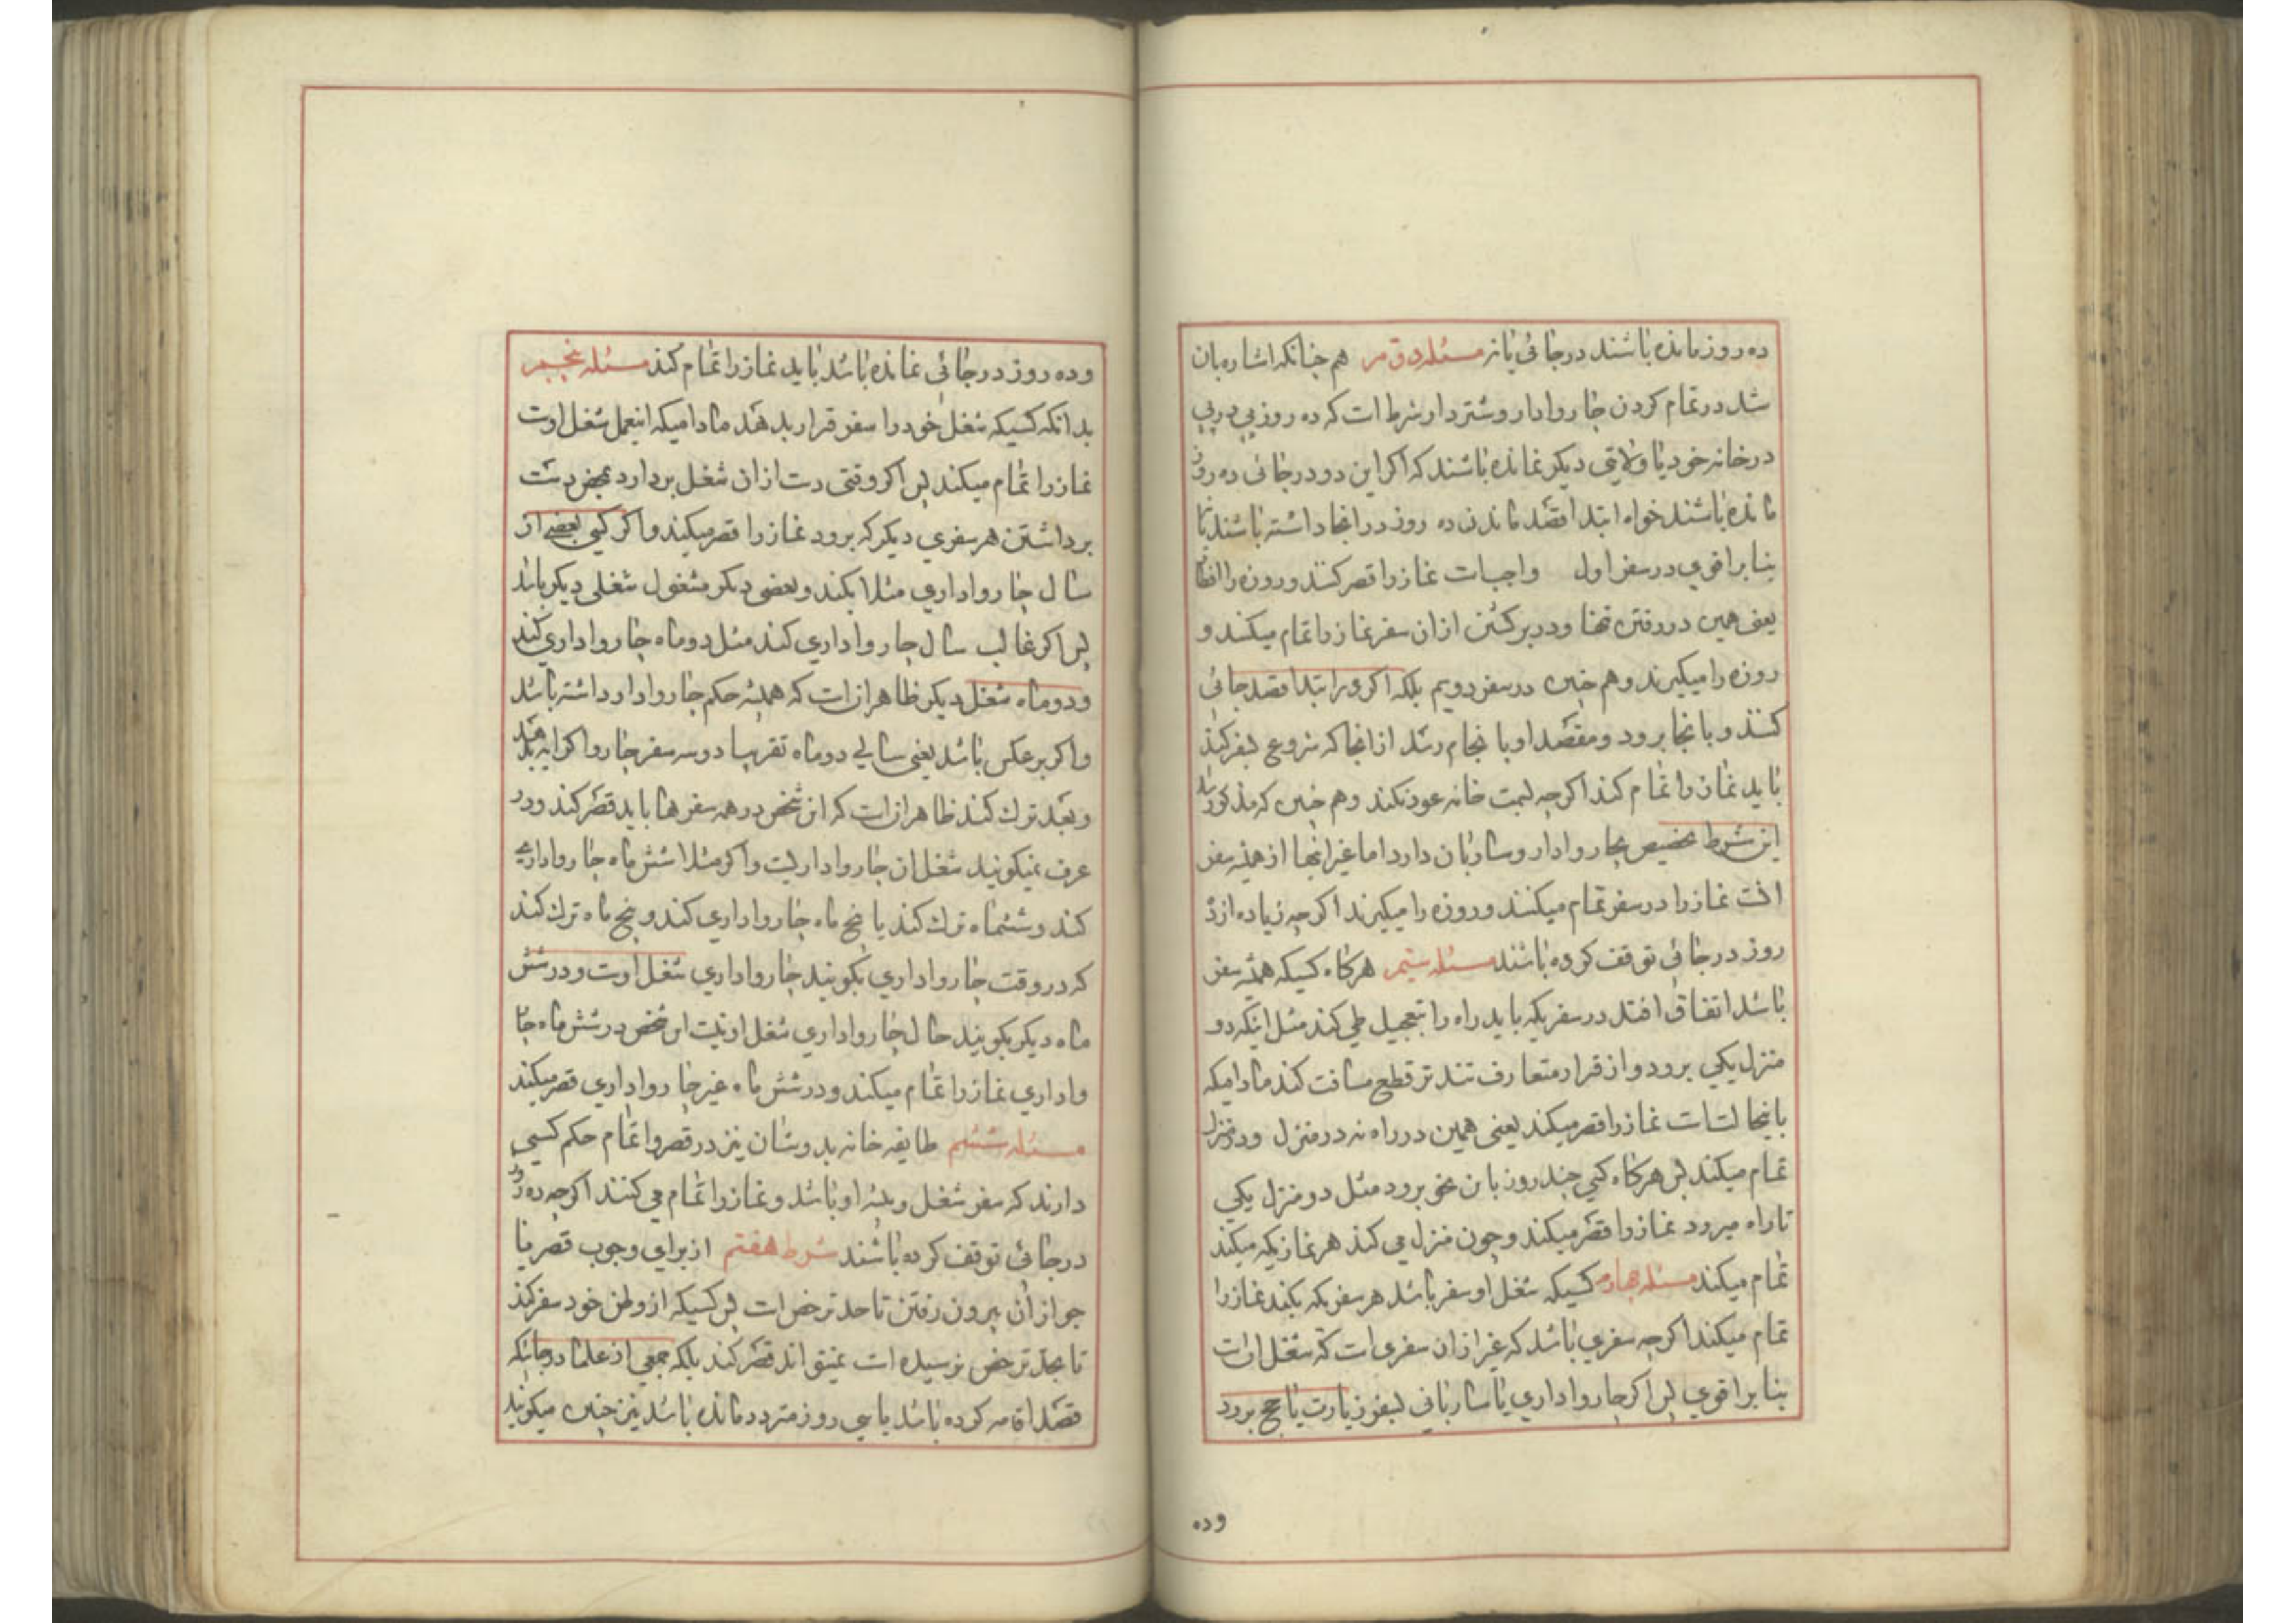 ده روز مانده باشند در جائی یا نه مسئله دوم هم چنانکه اشاره بان
شد در تمام کردن جاروادار و شتردار شرط است که ده روز پی در پی
در خانه خود یا ولایتی دیکر نمانده باشند که اکر این دو در جائی ده روز
مانده باشند خواه ابتدا قصد ماندن ده روز در انجا داشته باشند یا نه
بنا بر اقوی در سفر اول واجبست نماز را قصر کنند و روزه را افطار
یعنی همین در رفتن تنها و در برکشتن ازان سفر نماز را تمام میکنند و
روزه را میکیرند و هم چنین در سفر دویم بلکه اکر در ابتدا قصد جائی
کنند و بانجا برود و مقصد او بانجام رسد از انجا که شروع بسفر کند
باید نماز را تمام کند اکرچه بسمت خانه عود نکند و هم چنین که مذکور شد
این شرط تخصیص بجاروادار و ساربان دارد اما غیر انها از همیشه سفر
است نماز را در سفر تمام میکنند و روزه را میکیرند اکرچه زیاده از ده
روز در جائی توقف کرده باشند مسئله سیم هرکاه کسیکه همیشه سفر
باشد اتفاق افتد در سفریکه باید راه را بتعجیل طی کند مثل اینکه دو
منزل یکی برود و از قرار متعارف تند تر قطع مسافت کند مادامیکه
باینحالت است نماز را قصر میکند یعنی همین در راه نه در منزل و در منزل
تمام میکند پس هرکاه کسی چند روز بان نحو برود مثل دو منزل یکی
تا راه میرود نماز را قصر میکند و چون منزل می کند هر نمازیکه میکند
تمام میکند مسئله چهارم کسیکه شغل او سفر باشد هر سفریکه بکند نماز را
تمام میکند اکرچه سفری باشد که غیر ازان سفری است که شغل اوست
بنا بر اقوی پس اکر جارواداری یا ساربانی بسفر زیارت یا حج برود
وده
وده روز در جائی نمانده باشد باید نماز را تمام کند مسئله پنجم
بدانکه کسیکه شغل خود را سفر قرار بدهد مادامیکه اینعمل شغل اوست
نماز را تمام میکند پس اکر وقتی دست ازان شغل بردارد بمحض دست
برداشتن هر سفری دیکر که برود نماز را قصر میکند و اکر کسی بعضی از
سال جارواداری مثلا بکند و بعضی دیکر مشغول شغلی دیکر باشد
پس اکر غالب سال جارواداری کند مثل دو ماه جارواداری کند
و دو ماه شغل دیکر ظاهر انست که همیشه حکم جاروادار داشته باشد
و اکر بر عکس باشد یعنی سالی دو ماه تقریبا دو سه سفر جاروا کرایه بدهد
و بعد ترک کند ظاهر انست که این شخص در همه سفرها باید قصر کند و در
عرف نمیکویند شغل ان جاروادار یست و اکر مثلا شش ماه جارواداری
کند و ششماه ترک کند یا پنج ماه جارواداری کند و پنج ماه ترک کند
که در وقت جارواداری بکویند جارواداری شغل اوست و در شش
ماه دیکر بکویند حال جارواداری شغل او نیست این شخص در شش ماه جار
واداری نماز را تمام میکند و در شش ماه غیر جارواداری قصر میکند
مسئله ششم طایفه خانه بدوشان نیز در قصر و اتمام حکم کسی
دارند که سفر شغل و پیشه او باشد و نماز را تمام می کنند اکرچه ده روز
در جائی توقف کرده باشند شرط هفتم از برای وجوب قصر یا
جواز ان بیرون رفتن تا حد ترخص است پس کسیکه از وطن خود سفر کند
تا بحد ترخص نرسیده است نمیتواند قصر کند بلکه جمعی از علما در جائیکه
قصد اقامه کرده باشد یا سی روز متردد مانده باشد نیز چنین میکویند